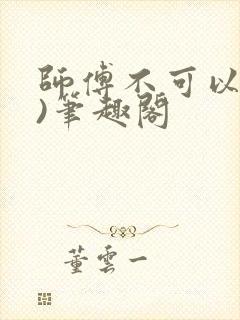 師傅不可以
)筆趣閣
董雲一